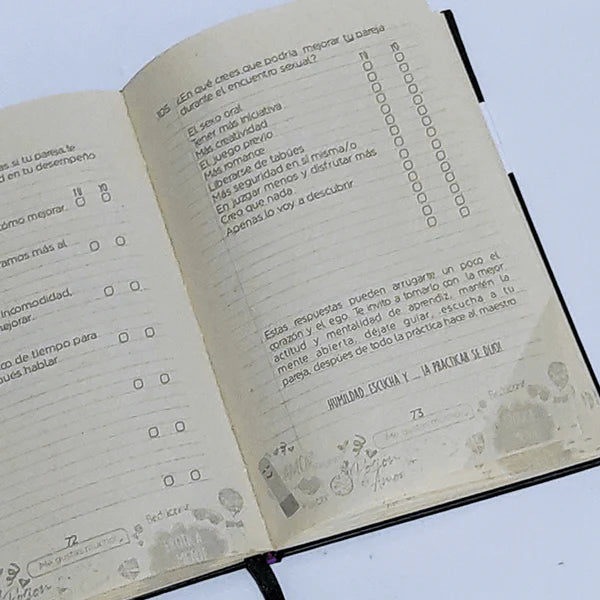 as si tu pareja te
d en tu desempeño
TÚ YO
cómo mejorar.
ramos más al
incomodidad,
ejorar.
co de tiempo para
pués hablar
72
¡Me gustas mucho!
Reducción
105 ¿En qué crees que podría mejorar tu pareja
durante el encuentro sexual?
TÚ YO
El sexo oral
Tener más iniciativa
Más creatividad
El juego previo
Más romance
Liberarse de tabúes
Más seguridad en sí misma/o
En juzgar menos y disfrutar más
Creo que nada
Apenas lo voy a descubrir
Estas respuestas pueden arrugarte un poco el
corazón y el ego. Te invito a tomarlo con la mejor
actitud y mentalidad de aprendiz, mantén la
mente abierta, déjate guiar, escucha a tu
pareja, después de todo la práctica hace al maestro.
HUMILDAD, ESCUCHA Y ... ¡A PRACTICAR SE DIJO!
73
¡Me gustas mucho!
AMOR
Poción
Amor